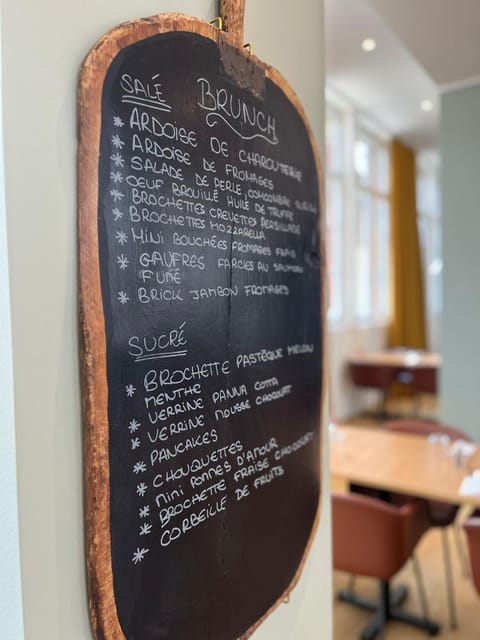 BRUNCH
SALÉ
* ARDOISE DE CHARCUTERIE
* ARDOISE DE FROMAGES
* SALADE DE PERLE, CONCOMBRE
* OEUF BROUILLÉ HUILE DE TRUFFE
* BROCHETTES CREVETTES PERSILLADE
* BROCHETTES MOZZARELLA
* MINI BOUCHÉES FROMAGES FRAIS
* GAUFRES FARCIES AU SAUMON
FUMÉ
* BRICK JAMBON FROMAGES
SUCRÉ
* BROCHETTE PASTÈQUE MELON
MENTHE
* VERRINE PANNA COTTA
* VERRINE MOUSSE CHOCOLAT
* PANCAKES
* CHOUQUETTES
* MINI POMMES D'AMOUR
* BROCHETTE FRAISE CHOCOLAT
* CORBEILLE DE FRUITS